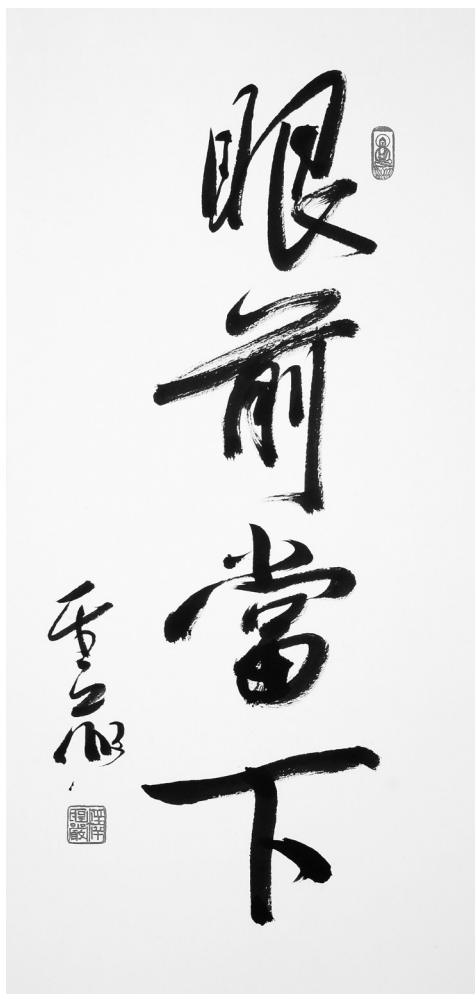 眼前當下
聖嚴